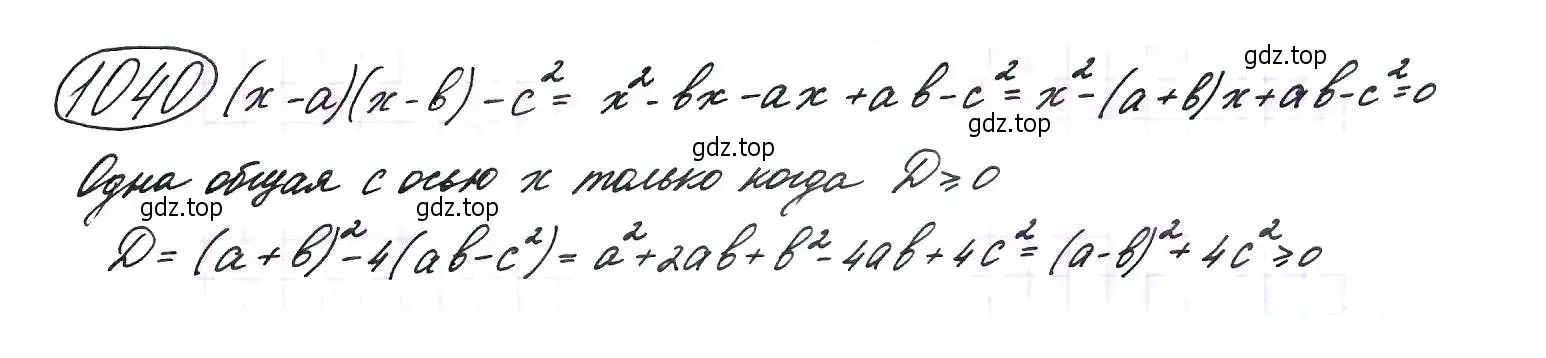 1040 (x-a)(x-в)-c²= x²-вx-ax+aв-c²=x²-(a+в)x+aв-c²=0
gdz.top
gdz.top
gdz.top
Одна общая с осью x только когда D≥0
gdz.top
gdz.top
D=(a+в)²-4(aв-c²)=a²+2aв+в²-4aв+4c²=(a-в)²+4c²≥0